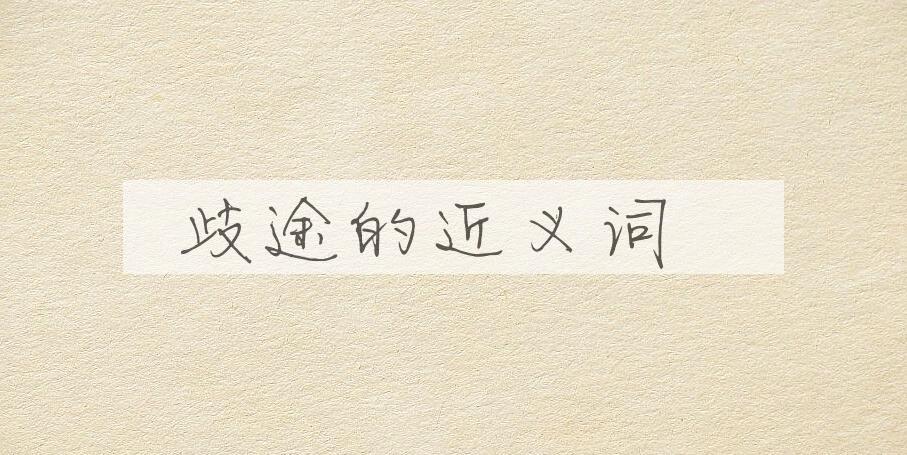 歧途的近义词